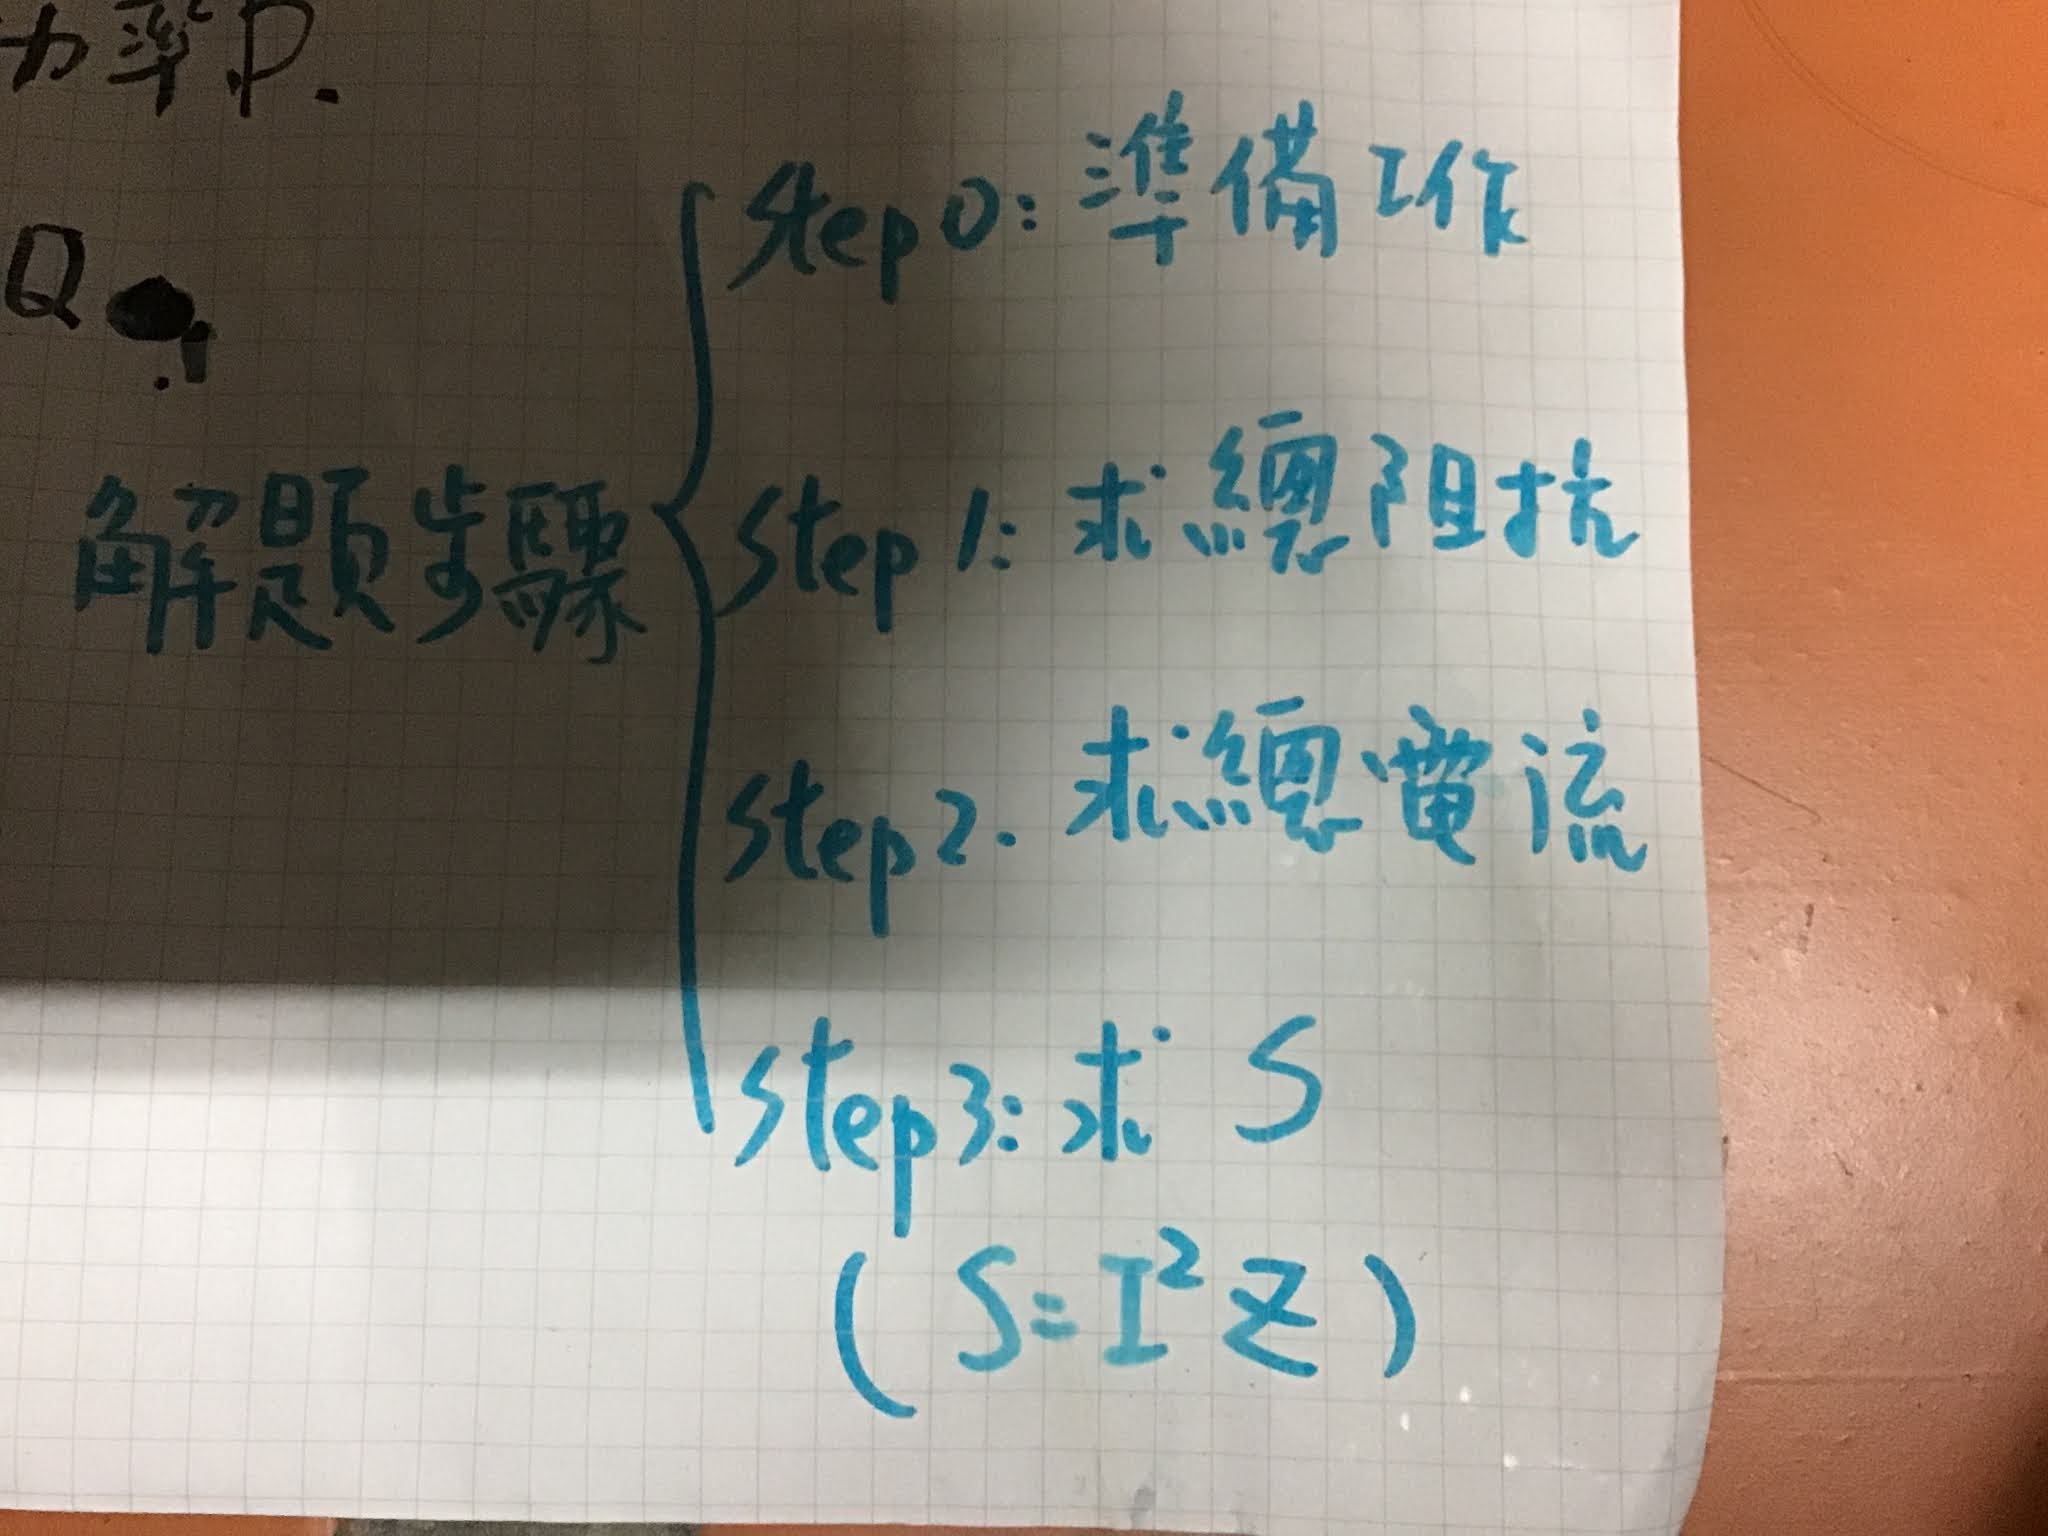 功率P.
Q
step0: 準備工作
解題步驟
step1: 求總阻抗
step2. 求總電流
step3: 求 S
(S=I²Z)